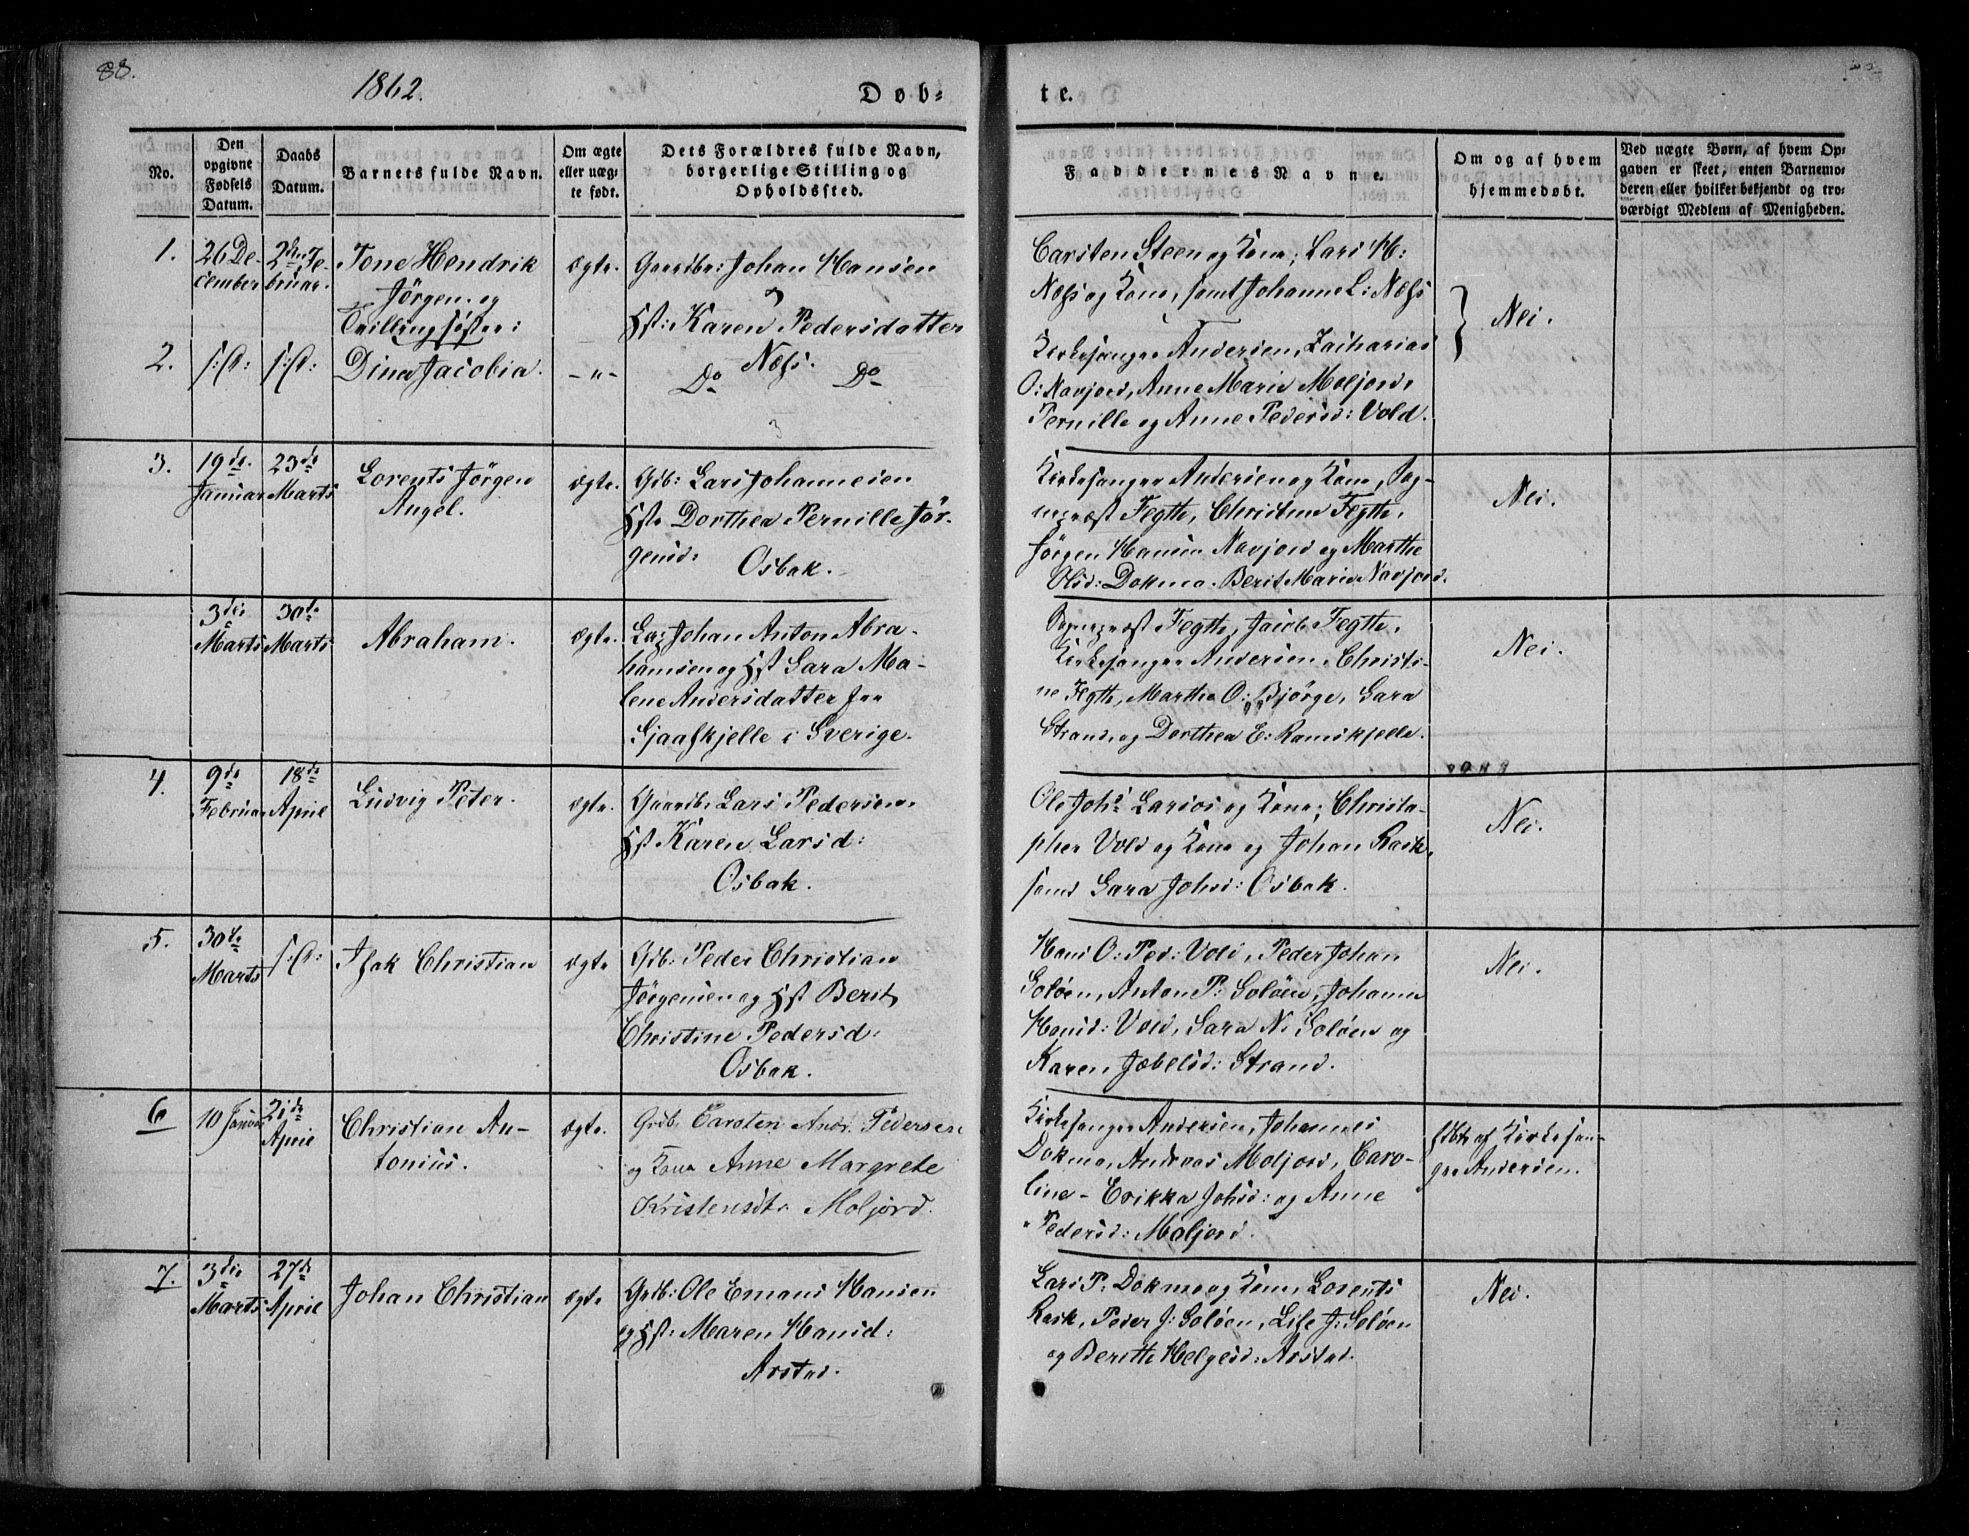 88.
1862.
Døb-
te.
No.
Den opgivne Fødsels Datum.
Daabs Datum.
Barnets fulde Navn.
Om ægte eller uæg-te født.
Dets Forældres fulde Navn, borgerlige Stilling og Opholdssted.
Faddernes Navne.
Om og af hvem hjemmedøbt.
Ved uægte Børn, af hvem Op-gaven er skeet, enten Barnemo-deren eller hvilket bekjendt og tro-værdigt Medlem af Menigheden.
1.
26 De-
cember
2den Fe-
bruar.
Tone Hendrik
Jørgen. og
Tvillingsøster:
ægte.
Gaardbr: Johan Hansen
Hst: Karen Pedersdatter
Næss.
Carsten Steen og Kone, Lars H:
Næss og Kone, samt Johanne L: Næss
Nei.
2.
Dina Jacobia.
-"-
Do Do
Kirkesanger Andersen, Zacharias
O: Navjord, Anne Marie Moljord,
Pernille og Anne Pedersd: Vold.
3.
19de
Januar
23de
Marts
Lorents Jørgen
Angel.
ægte.
Gdb: Lars Johannesen
Hst. Dorthea Pernille Jør-
gensd:
Osbak.
Kirkesanger Andersen og Kone, Sog-
nepræst Fegth, Christine Fegth,
Jørgen Hansen Navjord og Marthe
Olsd: Dokmo. Berit Marie Navjord.
Nei.
3die
Marts
30te
Marts
Abraham.
ægte.
Lap Johan Anton Abra-
hamsen og Hst Sara Ma-
lene Andersdatter fra
Sjaafkjelle i Sverige.
Sognepræst Fegth, Jacob Fegth,
Kirkesanger Andersen, Christi-
ne Fegth, Marthe O: Bjørge, Sara
Strand, og Dorthea E: Ramskjelle.
Nei.
4.
9de
Februar
18de
April
Ludvig Peter.
ægte.
Gaardb. Lars Pedersen,
Hst Karen Larsd:
Osbak.
Ole Johs Larsos og Kone, Christo-
pher Vold og Kone og Johan Rask,
samt Sara Johsd: Osbak.
Nei.
5.
30te
Marts
Isak Christian
ægte
Gdb: Peder Christian
Jørgensen og Hst Berit
Christine Pedersd:
Osbak.
Hans O: Ped: Vold, Peder Johan
Soløen, Anton P: Soløen, Johanna
Hansd: Vold, Sara N: Soløen og
Karen Jæbelsd: Strand.
Nei.
6
10 Januar
21de
April
Christian An-
tonius.
ægte.
Grdb. Carsten Andr. Pedersen
og Kone Anne Margrete
Kristensdtr Moljord.
Kirkesanger Andersen, Johannes
Dokmo, Andreas Moljord, Caro-
line- Erikka Johsd: og Anne
Pedersd: Moljord.
hbt. af Kirkesan-
ger Andersen.
7.
3die
Marts
27de
April
Johan Christian
ægte
Grdb: Ole Emans Hansen
og Hst: Maren Hansd:
Arstad.
Lars P: Dokmo og Kone, Lorents
Rask, Peder J: Soløen, Lise J: Soløen
og Beritte Helgesd: Arstad.
Nei.